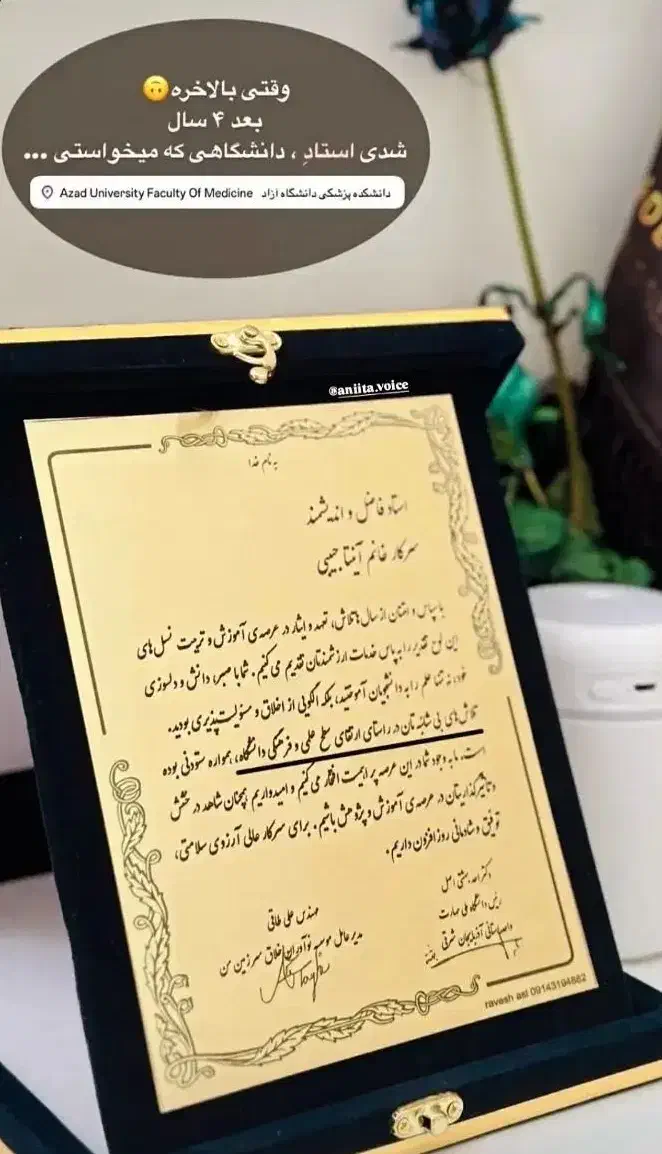 وقتی بالاخره🙃
بعد ۴ سال
شدی استادِ ، دانشگاهی که میخواستی ...
Azad University Faculty Of Medicine دانشکده پزشکی دانشگاه آزاد
@aniita.voice
به نام خدا
استاد فاضل و اندیشمند
سرکار خانم آنیتا حبیبی
با سپاس و امتنان از سال ها تلاش، تعهد و ایثار در عرصه ی آموزش و تربیت نسل های
این لوح تقدیر را به پاس خدمات ارزشمندتان تقدیم می کنیم. شما با صبر، دانش و دلسوزی
خود، نه تنها علم را به دانشجویان آموختید، بلکه الگویی از اخلاق و مسئولیت پذیری بودید.
تلاش های بی شائبه تان در راستای ارتقای سطح علمی و فرهنگی دانشگاه، همواره ستودنی بوده
است. ما به وجود شما در این عرصه پر اهمیت افتخار می کنیم و امیدواریم همچنان شاهد درخشش
و تاثیرگذاریتان در عرصه ی آموزش و پژوهش باشیم. برای سرکار عالی آرزوی سلامتی،
توفیق و شادمانی روزافزون داریم.
دکتر احد بهشتی اصل
رئیس دانشگاه ملی مهارت
واحد استانی آذربایجان شرقی
مهندس علی طاقی
مدیر عامل موسسه نوآوران خلاق سرزمین من
ravesh asl 09143194882